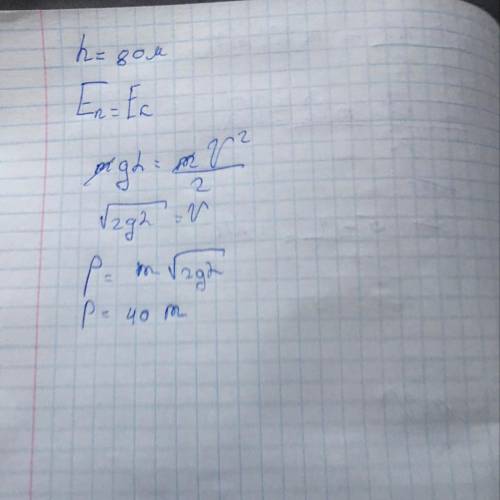 h = 80м
Eп = Eк
mgh = mV²/2
√2gh = V
p = m √2gh
p = 40 m